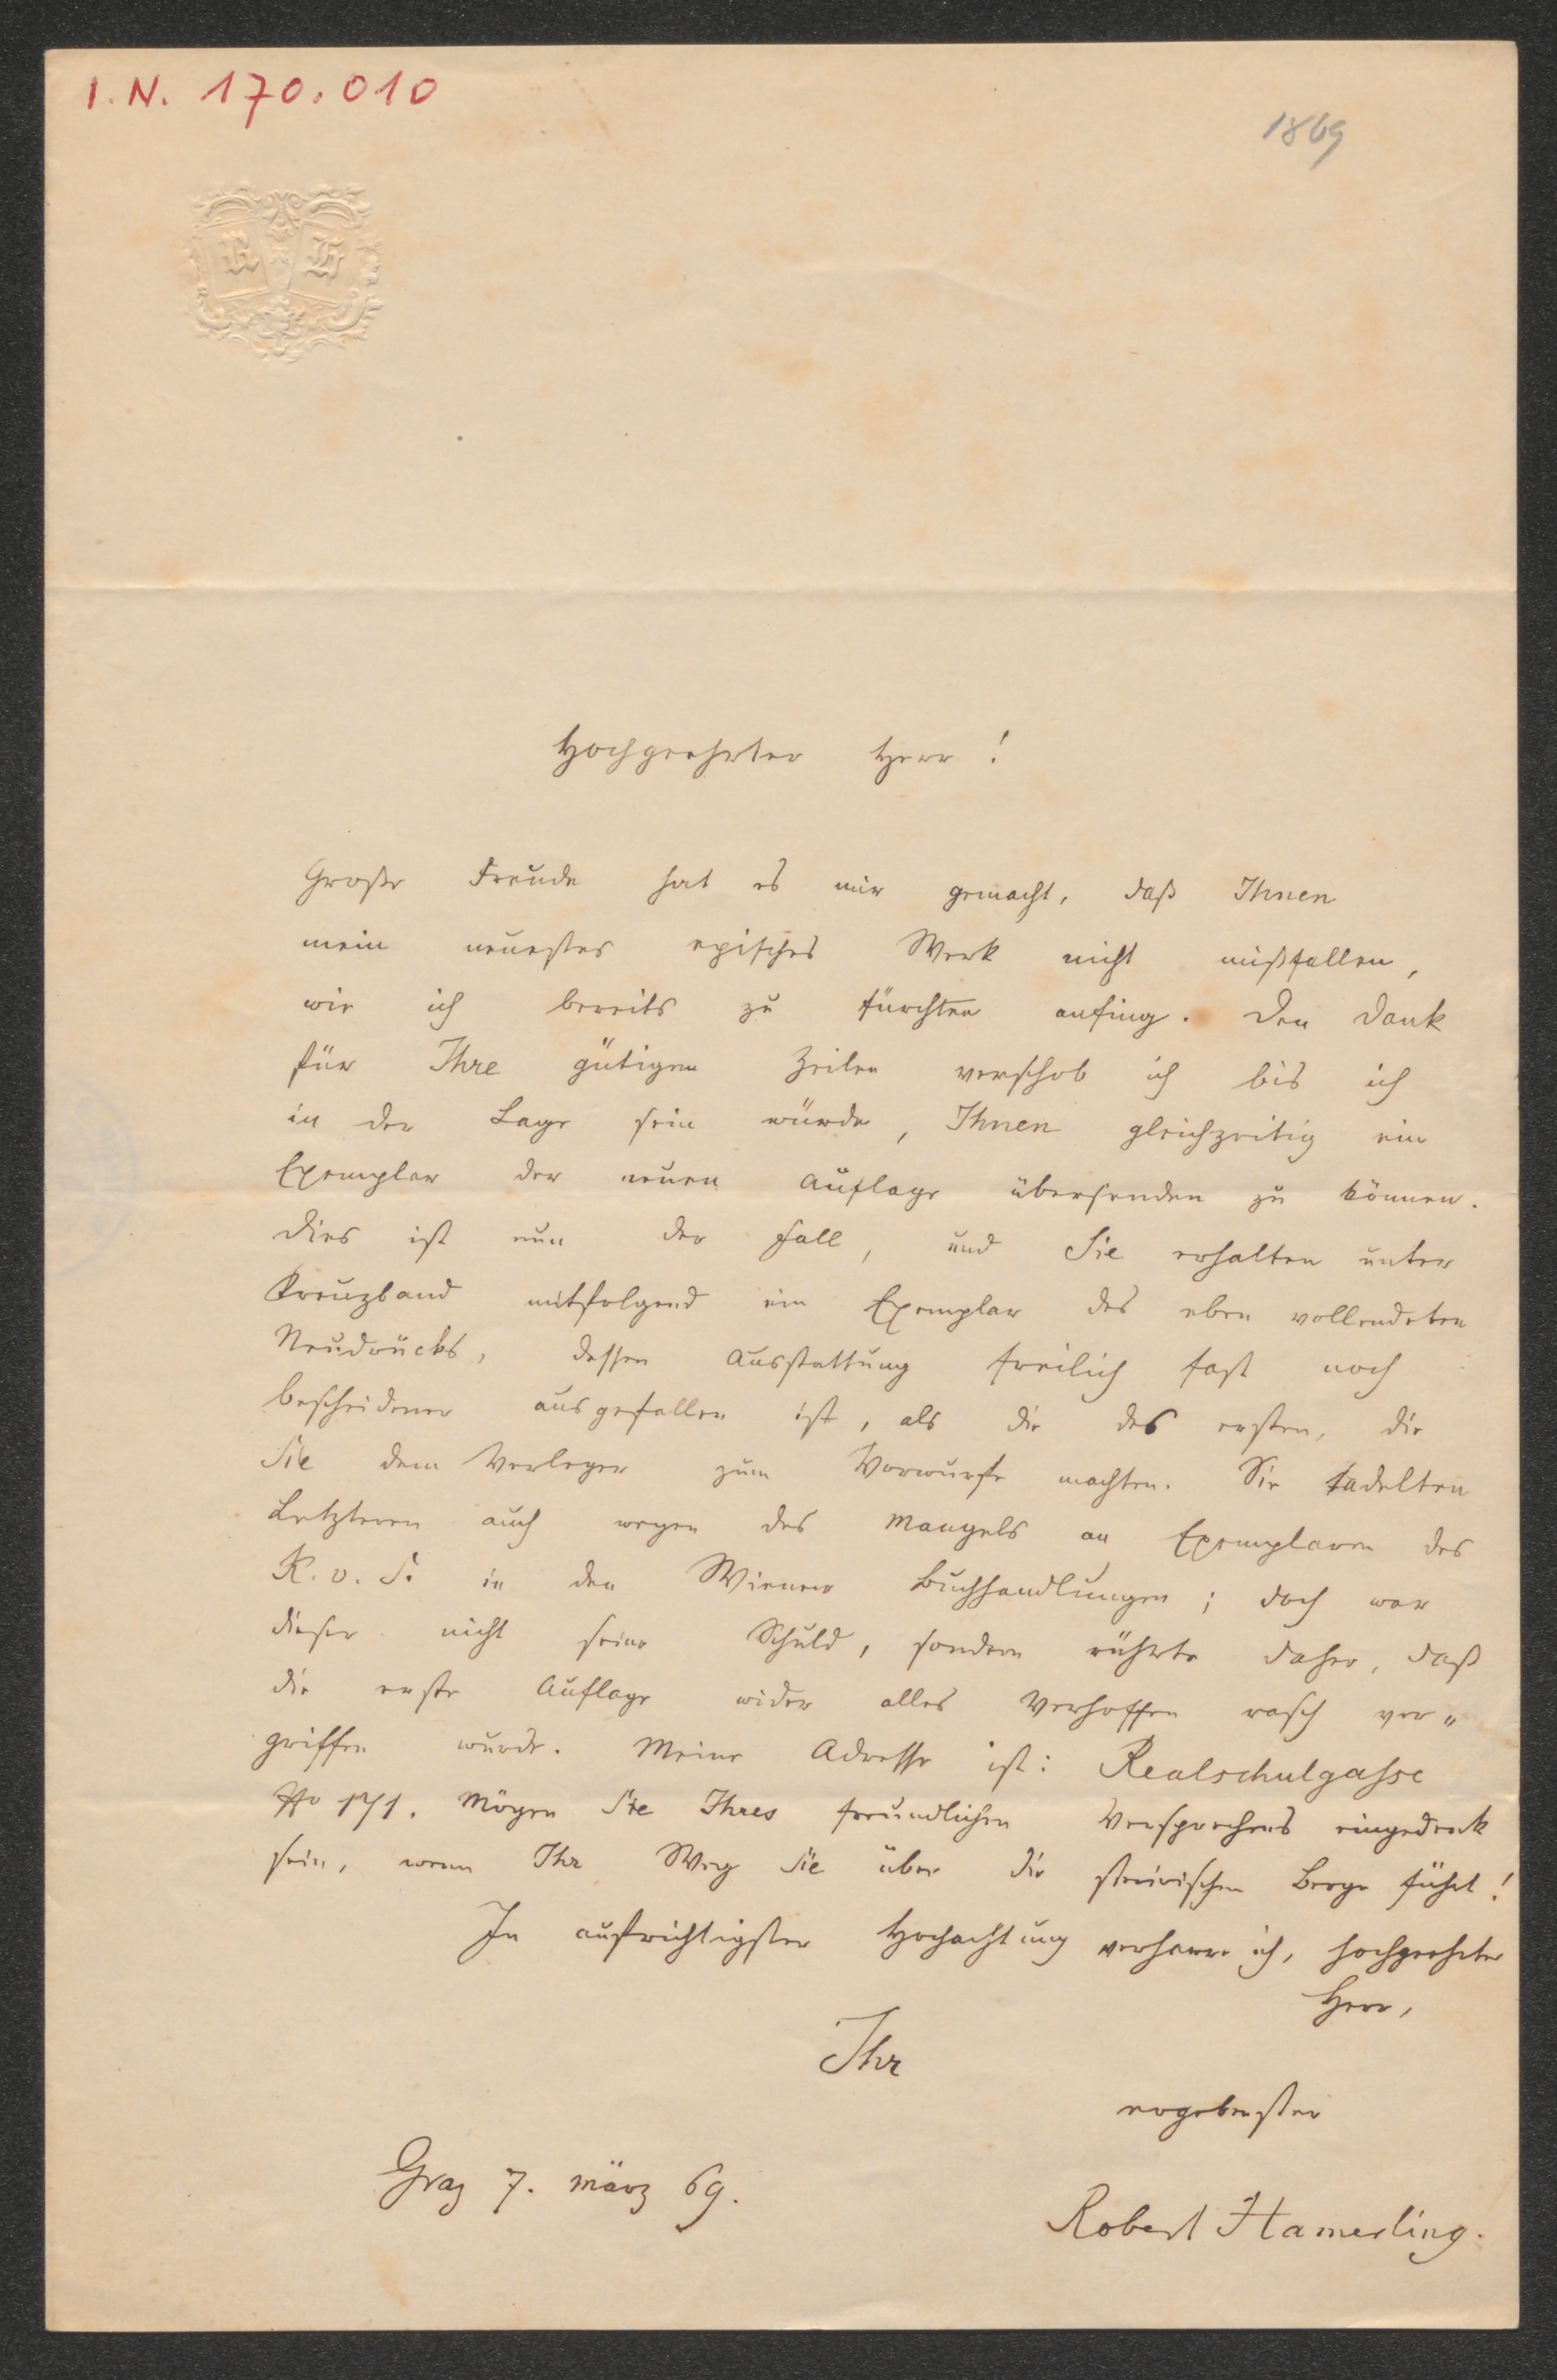 I. N. 170.010
1869
R H
Hochgeehrter Herr!
Große Freude hat es mir gemacht, daß Ihnen
mein neuestes episches Werk nicht mißfallen,
wie ich bereits zu fürchten anfing. Den Dank
für Ihre gütigen Zeilen verschob ich bis ich
in der Lage sein würde, Ihnen gleichzeitig ein
Exemplar der neuen Auflage übersenden zu können.
Dies ist nun der Fall, und Sie erhalten unter
Kreuzband mitfolgend ein Exemplar des eben vollendeten
Neudrucks, dessen Ausstattung freilich fast noch
bescheidener ausgefallen ist, als die des ersten, die
Sie dem Verleger zum Vorwurfe machten. Sie tadelten
Letzteren auch wegen des Mangels an Exemplaren des
K. v. S. in den Wiener Buchhandlungen; doch war
dieser nicht seine Schuld, sondern rührte daher, daß
die erste Auflage wider alles Verhoffen rasch ver„
griffen wurde. Meine Adresse ist: Realschulgasse
No 171. Mögen Sie Ihres freundlichen Versprechens eingedenk
sein, wenn Ihr Weg Sie über die steirischen Berge führt!
In aufrichtigster Hochachtung verharre ich, hochgeehrter
Herr,
Ihr
ergebenster
Graz 7. März 69.
Robert Hamerling.